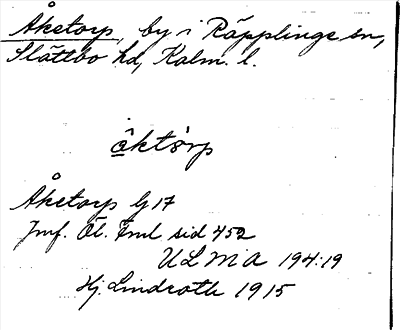 Åketorp, by i Räpplinge sn,
Slättbo hd, Kalm. l.
åktårp
Åketorp G 17
Jmf. Öl. Fml sid 452
ULMA 194:19
Hj. Lindroth 1915